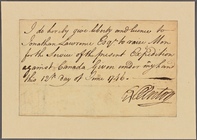 I do hereby give liberty and licence to
Jonathan Lawrence Esqr. to raise Men
for the Service of the present Expedition
against Canada Given under my hand
this 12th. day of June 1746.